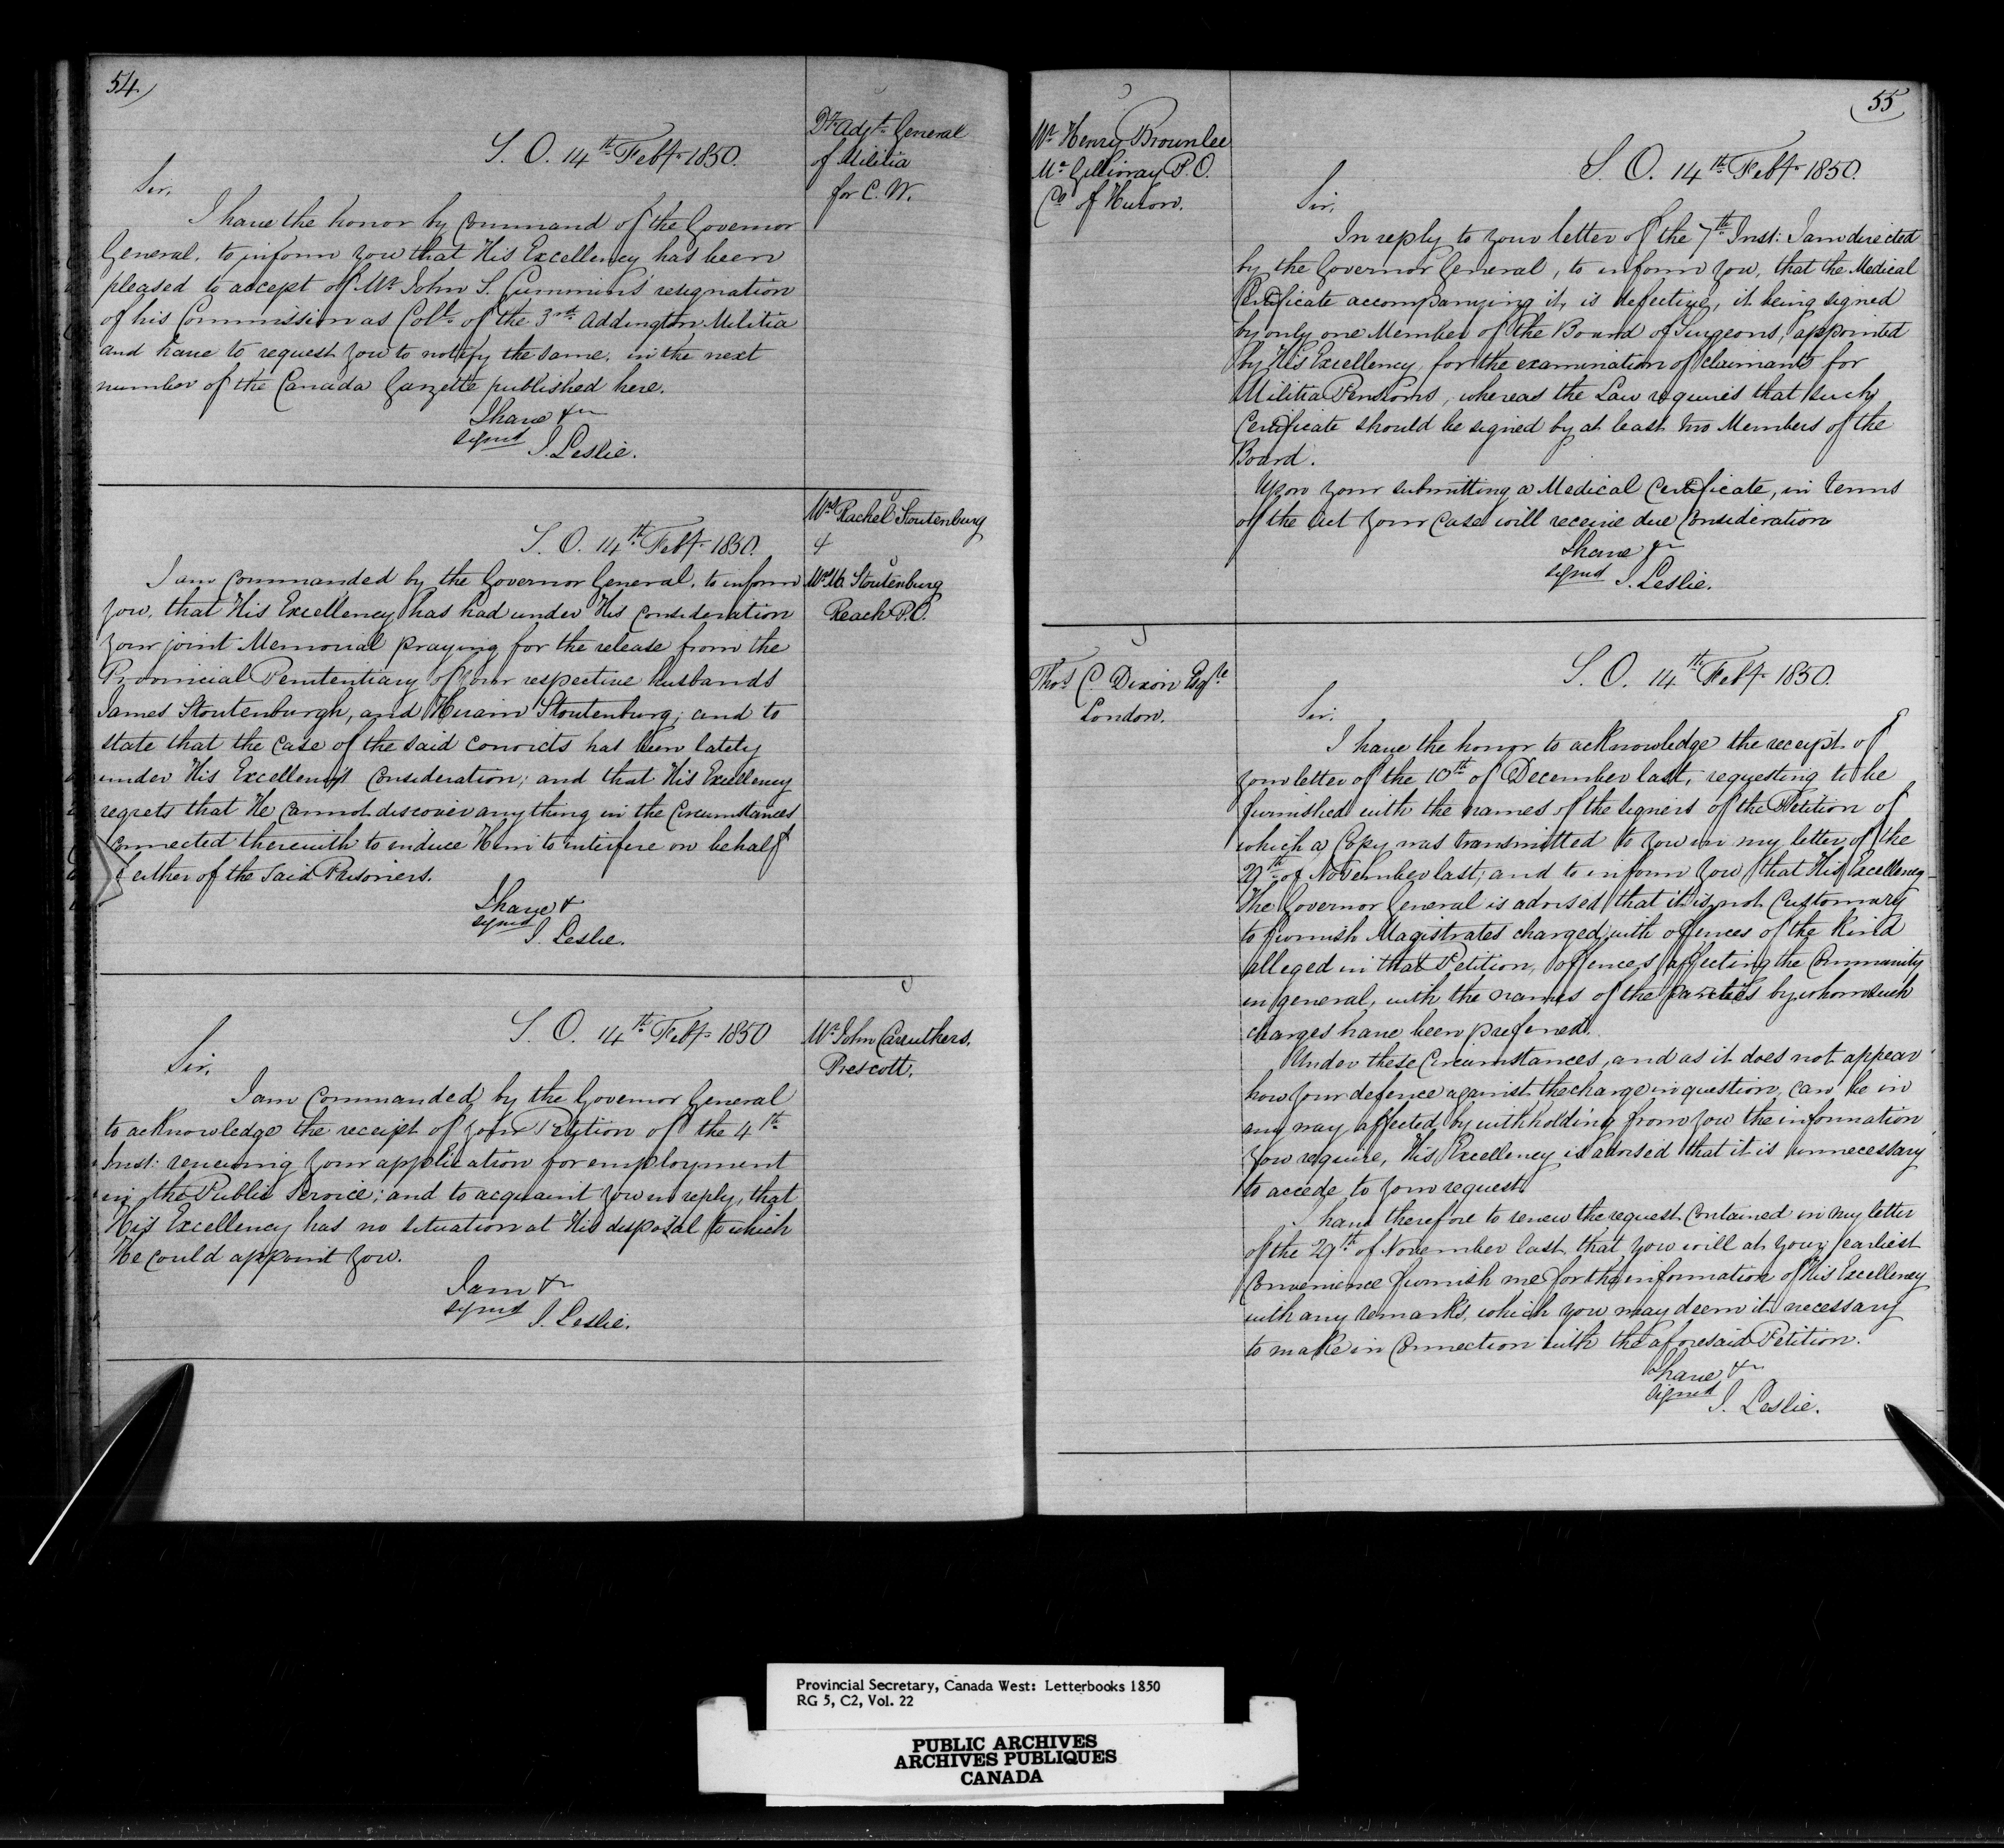 54
Dy Adjt. General
of Militia
for C. W.
S. O. 14th Feby 1850.
Sir,
I have the honor by Command of the Governor
General, to inform you that His Excellency has been
pleased to accept of Mr John S. Cummin's resignation
of his Commission as Coll. of the 3rd Addington Militia
and have to request you to notify the same, in the next
number of the Canada Gazette published here.
I have &c
signed J. Leslie.
Mrs Rachel Stoutenburg
&
Mrs M. Stoutenburg
Reach P.O.
S. O. 14th Feby 1850.
I am Commanded by the Governor General, to inform
you, that His Excellency has had under His Consideration
your joint Memorial praying for the release from the
Provincial Penitentiary of your respective husbands
James Stoutenburgh, and Hiram Stoutenburg; and to
state that the Case of the said Convicts has been lately
under His Excellency's Consideration; and that His Excellency
regrets that He Cannot discover anything in the Circumstances
Connected therewith to induce Him to interfere on behalf
of either of the said Prisoners.
I have &
signed J. Leslie.
Mr John Carruthers,
Prescott.
S. O. 14th Feby 1850
Sir,
I am Commanded by the Governor General
to acknowledge the receipt of your Petition of the 4th
Inst: renewing your application for employment
in the Public Service; and to acquaint you in reply, that
His Excellency has no situation at His disposal to which
He could appoint you.
I am &c
signed J. Leslie.
55
Mr Henry Brownlee
Mc Gillivray P.O.
Co of Huron.
S. O. 14th Feby 1850.
Sir,
In reply to your letter of the 7th Inst: I am directed
by the Governor General, to inform you, that the Medical
Certificate accompanying it, is defective, it being signed
by only one Member of the Board of Surgeons, appointed
by His Excellency, for the examination of Claimants for
Militia Pensions, whereas the Law requires that such
Certificate should be signed by at least two Members of the
Board.
Upon your submitting a Medical Certificate, in terms
of the Act your Case will receive due Consideration
I have &c
signed J. Leslie.
Thos C. Dixon Esqre
London.
S. O. 14th Feby 1850.
Sir,
I have the honor to acknowledge the receipt of
your letter of the 10th of December last, requesting to be
furnished with the names of the signers of the Petition of
which a Copy was transmitted to you in my letter of the
29th of November last; and to inform you that His Excellency
The Governor General is advised that it is not Customary
to furnish Magistrates charged with offences of the kind
alleged in that Petition, offences affecting the Community
in general, with the names of the parties by whom such
charges have been preferred.
Under these Circumstances, and as it does not appear
how your defence against the charge in question, can be in
any way affected by withholding from you the information
you require, His Excellency is advised that it is unnecessary
to accede to your request.
I have therefore to renew the request Contained in my letter
of the 29th of November last, that you will at your earliest
Convenience furnish me for the information of His Excellency
with any remarks, which you may deem it necessary
to make in Connection with the aforesaid Petition.
I have &c
signed J. Leslie.
Provincial Secretary, Canada West: Letterbooks 1850
RG 5, C2, Vol. 22
PUBLIC ARCHIVES
ARCHIVES PUBLIQUES
CANADA